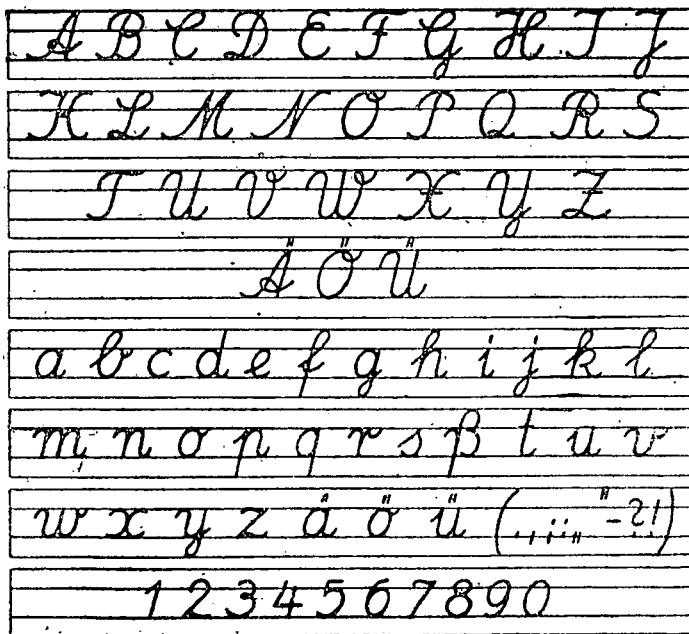 A B C D E F G H I J
K L M N O P Q R S
T U V W X Y Z
Ä Ö Ü
a b c d e f g h i j k l
m n o p q r s ß t u v
w x y z ä ö ü (.,:;„"-?!)
1 2 3 4 5 6 7 8 9 0